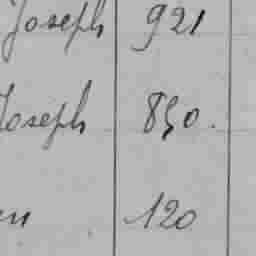 Joseph 921
Joseph 850.
en 120